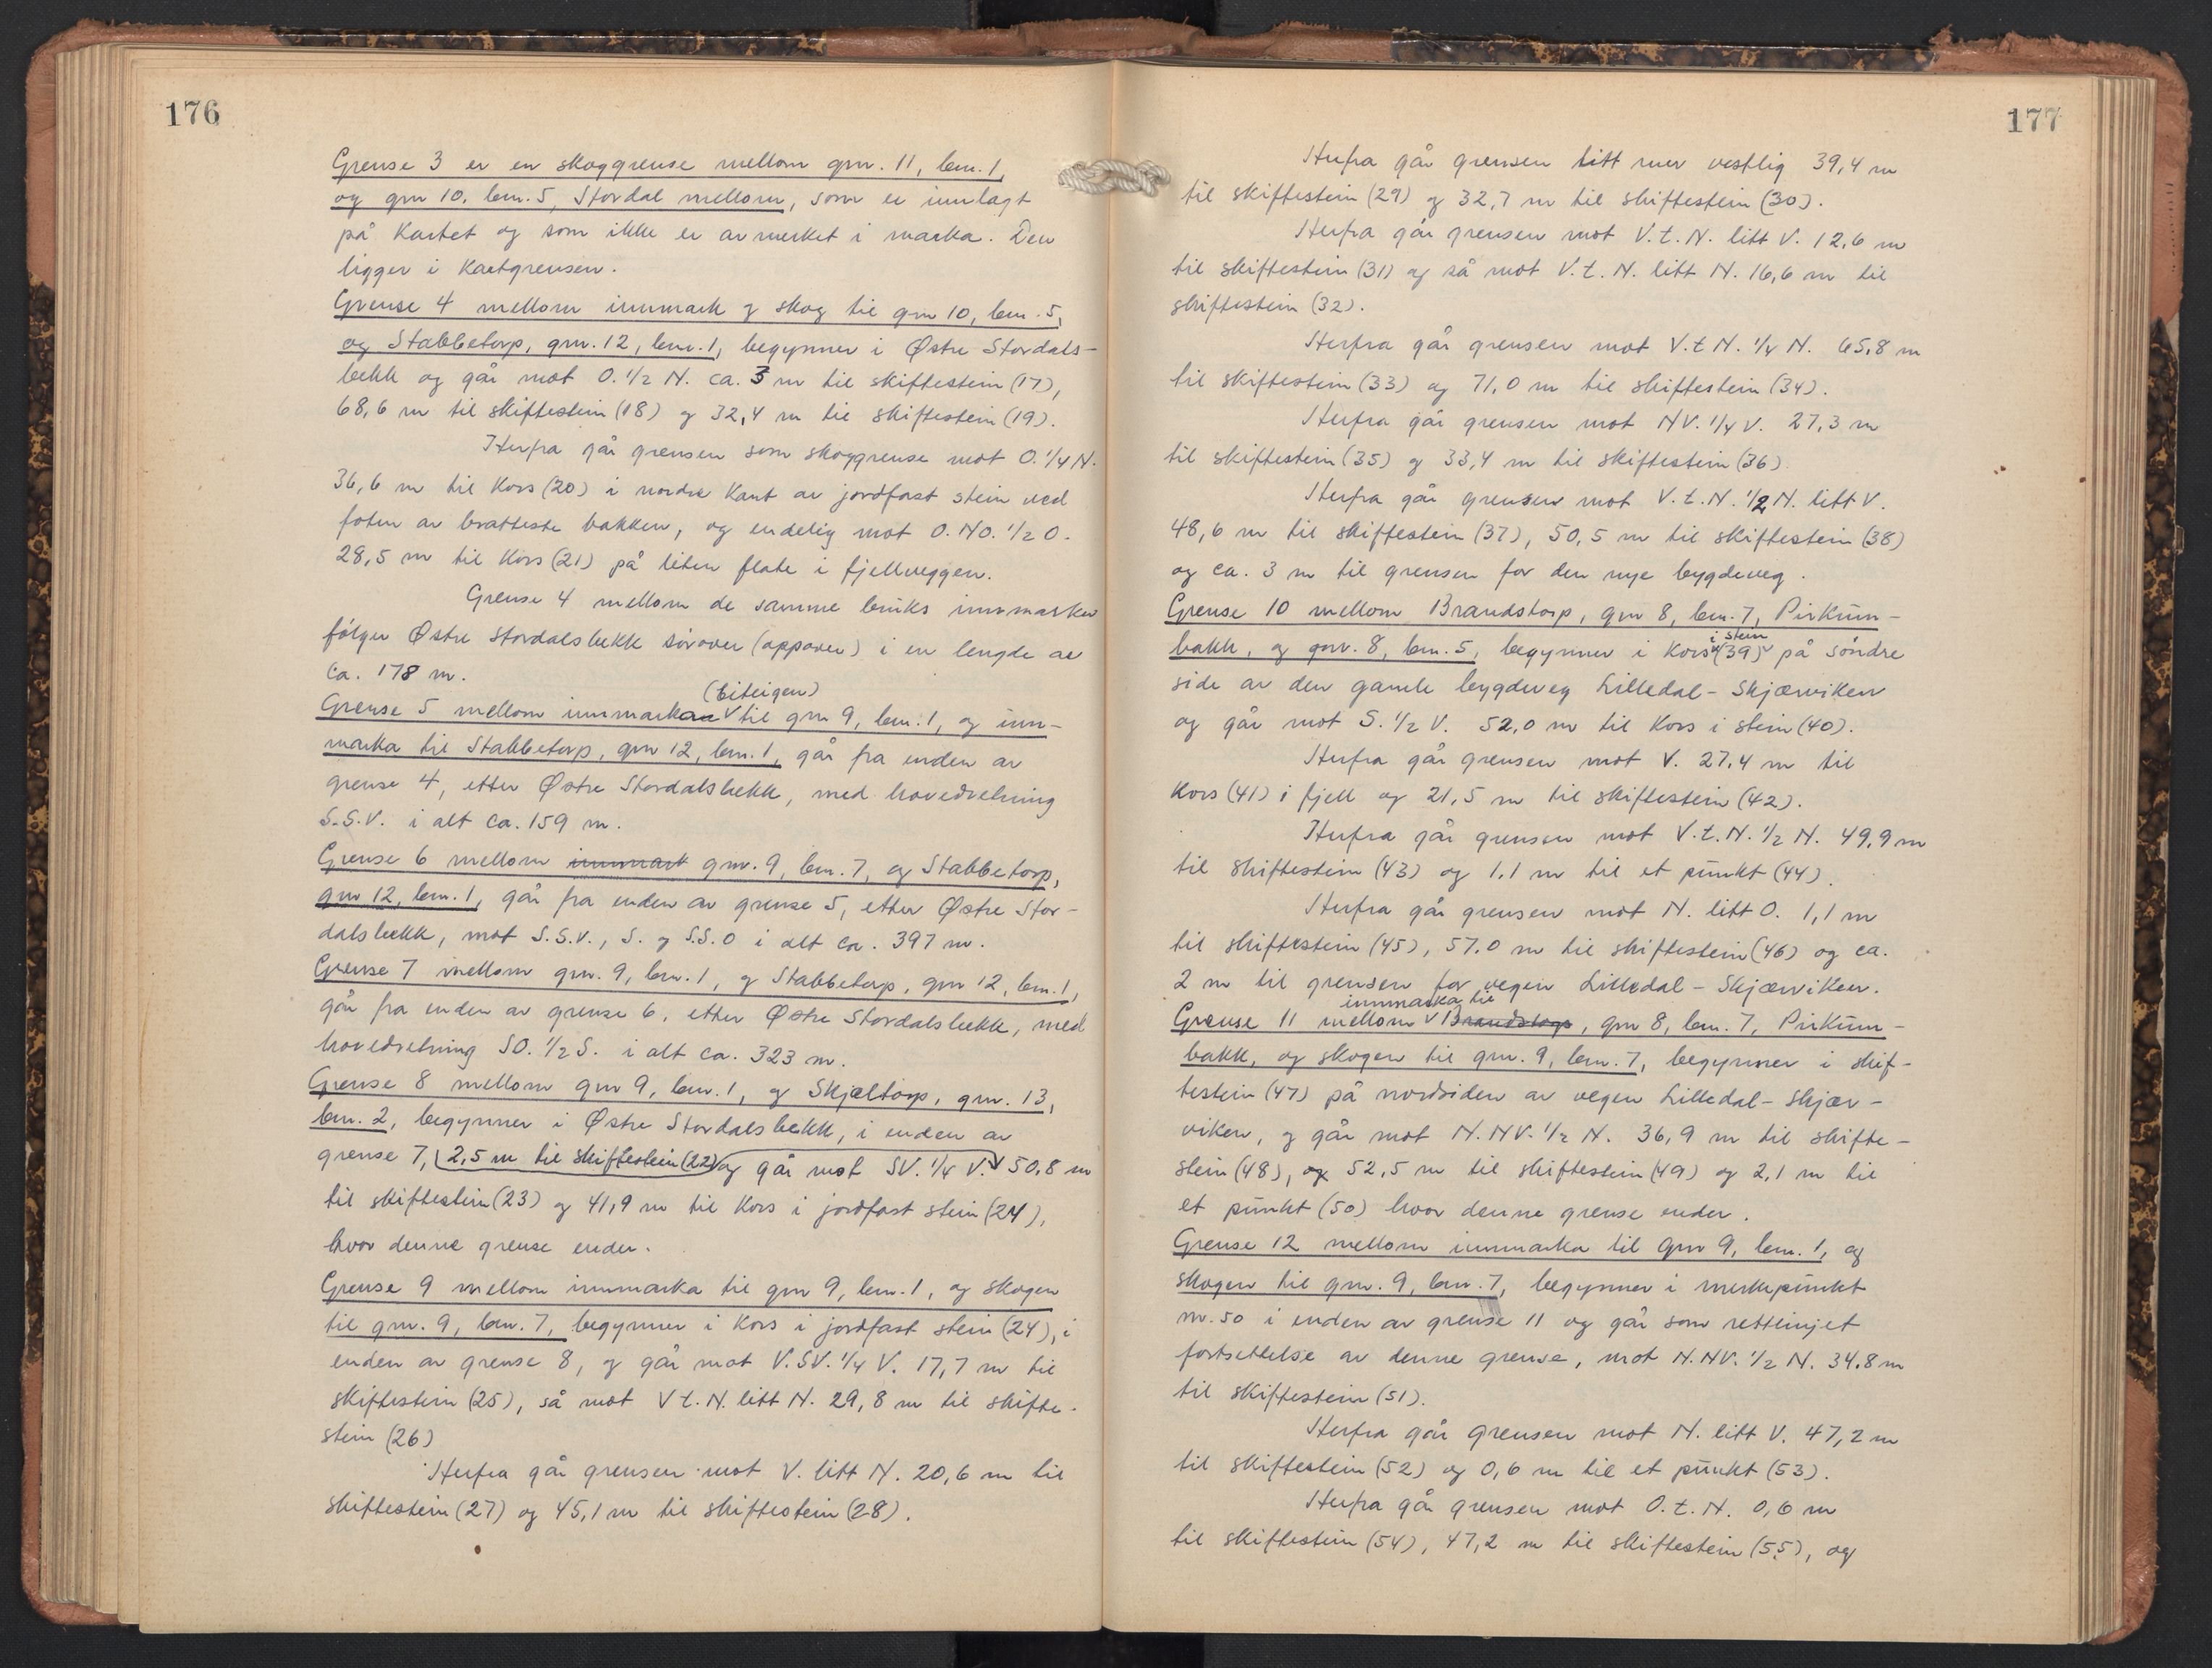 176
Grense 3 er en skoggrense mellom gnr. 11, bnr. 1,
og gnr 10, bnr. 5, Stordal mellom, som er innlagt
på Kartet og som ikke er avmerket i marka. Den
ligger i Kartgrensen.
Grense 4 mellom innmark og skog til gnr 10, bnr. 5,
og Stabbetorp, gnr. 12, bnr. 1, begynner i Østre Stordals-
bekk og går mot O. 1/2 N. ca. 3 m til skiftestein (17),
68,6 m til skiftestein (18) og 32,4 m til skiftestein (19).
Herfra går grensen som skoggrense mot O. 1/4 N.
36,6 m til Kors (20) i nordre Kant av jordfast stein ved
foten av bratteste bakken, og endelig mot O. NO. 1/2 O.
28,5 m til Kors (21) på liten flate i fjellveggen.
Grense 4 mellom de samme bruks innmarker
følger Østre Stordalsbekk sørover (oppover) i en lengde av
ca. 178 m.
(biteigen)
Grense 5 mellom innmarkaa til gnr 9, bnr. 1, og inn-
marka til Stabbetorp, gnr 12, bnr. 1, går fra enden av
grense 4, etter Østre Stordalsbekk, med hovedretning
S.S.V. i alt ca. 159 m.
Grense 6 mellom innmark gnr. 9, bnr. 7, og Stabbetorp,
gnr 12, bnr. 1, går fra enden av grense 5, etter Østre Stor-
dalsbekk, mot S.S.V., S. og S.S.O i alt ca. 397 m.
Grense 7 mellom gnr. 9, bnr. 1, og Stabbetorp, gnr 12, bnr. 1,
går fra enden av grense 6, etter Østre Stordalsbekk, med
hovedretning SO. 1/2 S. i alt ca. 323 m.
Grense 8 mellom gnr 9, bnr. 1, og Skjæltorp, gnr. 13,
bnr. 2, begynner i Østre Stordalsbekk, i enden av
grense 7, 2,5 m til skiftestein (22) og går mot SV. 1/4 V. 50,8 m
til skiftestein (23) og 41,9 m til Kors i jordfast stein (24),
hvor denne grense ender.
Grense 9 mellom innmarka til gnr 9, bnr. 1, og skogen
til gnr. 9, bnr. 7, begynner i Kors i jordfast stein (24), i
enden av grense 8, og går mot V. SV. 1/4 V. 17,7 m til
skiftestein (25), så mot V t. N. litt N. 29,8 m til skifte-
stein (26)
Herfra går grensen mot V. litt N. 20,6 m til
skiftestein (27) og 45,1 m til skiftestein (28).
177
Herfra går grensen litt mer vestlig 39,4 m
til skiftestein (29) og 32,7 m til skiftestein (30).
Herfra går grensen mot V. t. N. litt V. 12,6 m
til skiftestein (31) og så mot V. t. N. litt N. 16,6 m til
skiftestein (32).
Herfra går grensen mot V. t N. 1/4 N. 65,8 m
til skiftestein (33) og 71,0 m til skiftestein (34).
Herfra går grensen mot NV. 1/4 V. 27,3 m
til skiftestein (35) og 33,4 m til skiftestein (36)
Herfra går grensen mot V. t. N. 1/2 N. litt V.
48,6 m til skiftestein (37), 50,5 m til skiftestein (38)
og ca. 3 m til grensen for den nye bygdeveg.
Grense 10 mellom Brandstorp, gnr 8, bnr. 7, Pirkum-
i stein
bakk, og gnr. 8, bnr. 5, begynner i Kors (39) på søndre
side av den gamle bygdeveg Lilledal - Skjærviken
og går mot S. 1/2 V. 52,0 m til Kors i stein (40).
Herfra går grensen mot V. 27,4 m til
Kors (41) i fjell og 21,5 m til skiftestein (42).
Herfra går grensen mot V. t. N. 1/2 N. 49,9 m
til skiftestein (43) og 1,1 m til et punkt (44).
Herfra går grensen mot N. litt O. 1,1 m
til skiftestein (45), 57,0 m til skiftestein (46) og ca.
2 m til grensen for vegen Lilledal - Skjærviken.
innmarka til
Grense 11 mellom Brandstorp, gnr 8, bnr. 7, Pirkum-
bakk, og skogen til gnr. 9, bnr. 7, begynner i skif-
testein (47) på nordsiden av vegen Lilledal - Skjær-
viken, og går mot N. NV. 1/2 N. 36,9 m til skifte-
stein (48), og 52,5 m til skiftestein (49) og 2,1 m til
et punkt (50) hvor denne grense ender.
Grense 12 mellom innmarka til Gnr 9, bnr. 1, og
skogen til gnr. 9, bnr. 7, begynner i merkepunkt
nr. 50 i enden av grense 11 og går som rettlinjet
fortsettelse av denne grense, mot N. NV. 1/2 N. 34,8 m
til skiftestein (51).
Herfra går grensen mot N. litt V. 47,2 m
til skiftestein (52) og 0,6 m til et punkt (53).
Herfra går grensen mot O. t. N. 0,6 m
til skiftestein (54), 47,2 m til skiftestein (55), og